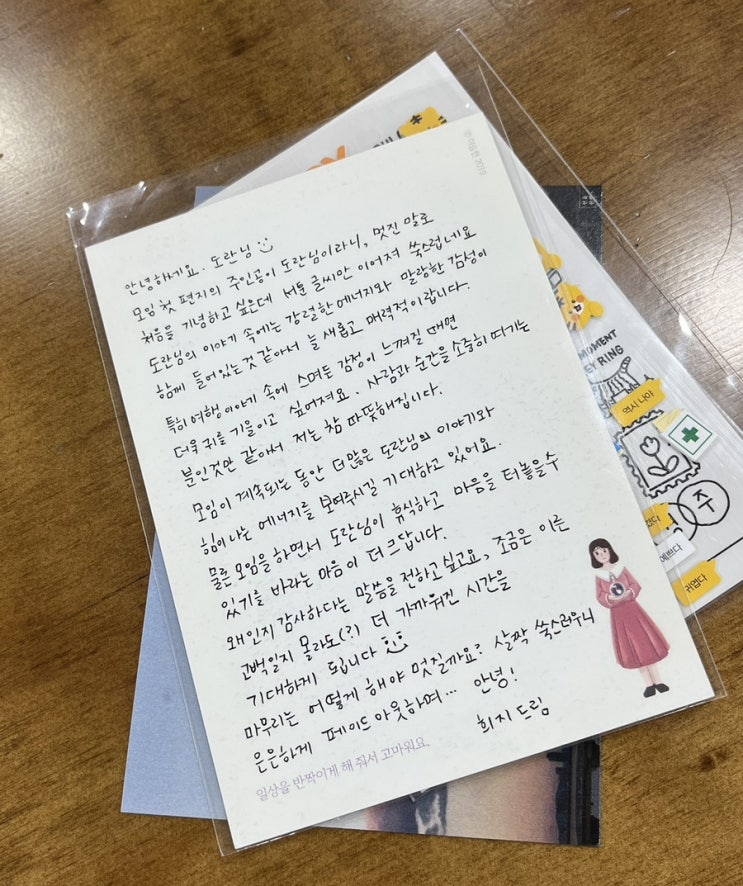 ⓒ이슬한 2019
안녕하세요. 도란님
모임 첫 편지의 주인공이 도란님이라니, 멋진 말로
처음을 기념하고 싶은데 서툰 글씨만 이어져 쑥스럽네요
도란님의 이야기 속에는 강렬한 에너지와 말랑한 감성이
함께 들어있는 것 같아서 늘 새롭고 매력적이랍니다.
특히 여행 이야기 속에 스며든 감정이 느껴질 때면
더욱 귀를 기울이고 싶어져요. 사람과 순간을 소중히 여기는
분인것만 같아서 저는 참 따뜻해집니다.
모임이 계속되는 동안 더 많은 도란님의 이야기와
힘이 나는 에너지를 보여주시길 기대하고 있어요.
물론 모임을 하면서 도란님이 휴식하고 마음을 터놓을수
있기를 바라는 마음이 더 크답니다.
왜인지 감사하다는 말씀을 전하고 싶고요, 조금은 이른
고백일지 몰라도(?) 더 가까워진 시간을
기대하게 됩니다
마무리는 어떻게 해야 멋질까요? 살짝 쑥스러우니
은은하게 페이드아웃하며... 안녕!
희지 드림
일상을 반짝이게 해 줘서 고마워요.
MOMENT
EY RING
역시 나야
주
졌다
예쁘다
귀엽다